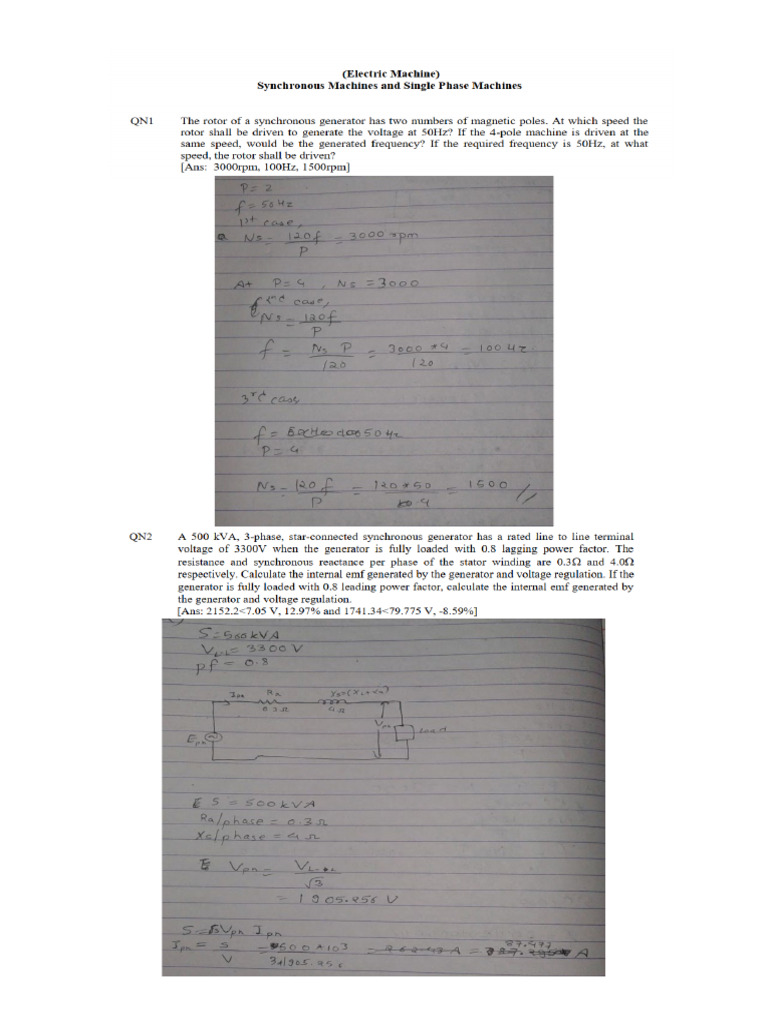 (Electric Machine)
Synchronous Machines and Single Phase Machines
QN1 The rotor of a synchronous generator has two numbers of magnetic poles. At which speed the
rotor shall be driven to generate the voltage at 50Hz? If the 4-pole machine is driven at the
same speed, would be the generated frequency? If the required frequency is 50Hz, at what
speed, the rotor shall be driven?
[Ans: 3000rpm, 100Hz, 1500rpm]
P = 2
f = 50 Hz
1st case,
Ns = 120f / P = 3000 rpm
At P = 4 , Ns = 3000
2nd case,
Ns = 120f / P
f = Ns P / 120 = 3000 * 4 / 120 = 100 Hz
3rd case
f = 50 Hz
P = 4
Ns = 120 f / P = 120 * 50 / 4 = 1500 //
QN2 A 500 kVA, 3-phase, star-connected synchronous generator has a rated line to line terminal
voltage of 3300V when the generator is fully loaded with 0.8 lagging power factor. The
resistance and synchronous reactance per phase of the stator winding are 0.3Ω and 4.0Ω
respectively. Calculate the internal emf generated by the generator and voltage regulation. If the
generator is fully loaded with 0.8 leading power factor, calculate the internal emf generated by
the generator and voltage regulation.
[Ans: 2152.2<7.05 V, 12.97% and 1741.34<79.775 V, -8.59%]
S = 500 kVA
VL-L = 3300 V
pf = 0.8
Ipn Ra
0.3 Ω 4 Ω
Vpn Load
Epn
S = 500 kVA
Ra/phase = 0.3 Ω
Xs/phase = 4 Ω
Vpn = VL-L / √3
= 1905.256 V
S = 3Vpn Ipn
Ipn = S / V = 500 * 10³ / 3*1905.256 = 87.477 A